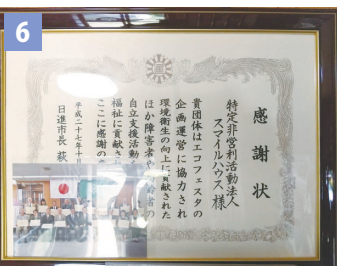 6
感謝状
特定非営利活動法人
スマイルハウス 様
貴団体はエコフェスタの
企画運営に協力され
環境衛生の向上に貢献された
ほか障害者や
自立支援活動
福祉に貢献さ
ここに感謝の
平成二十七年十月
日進市長 萩